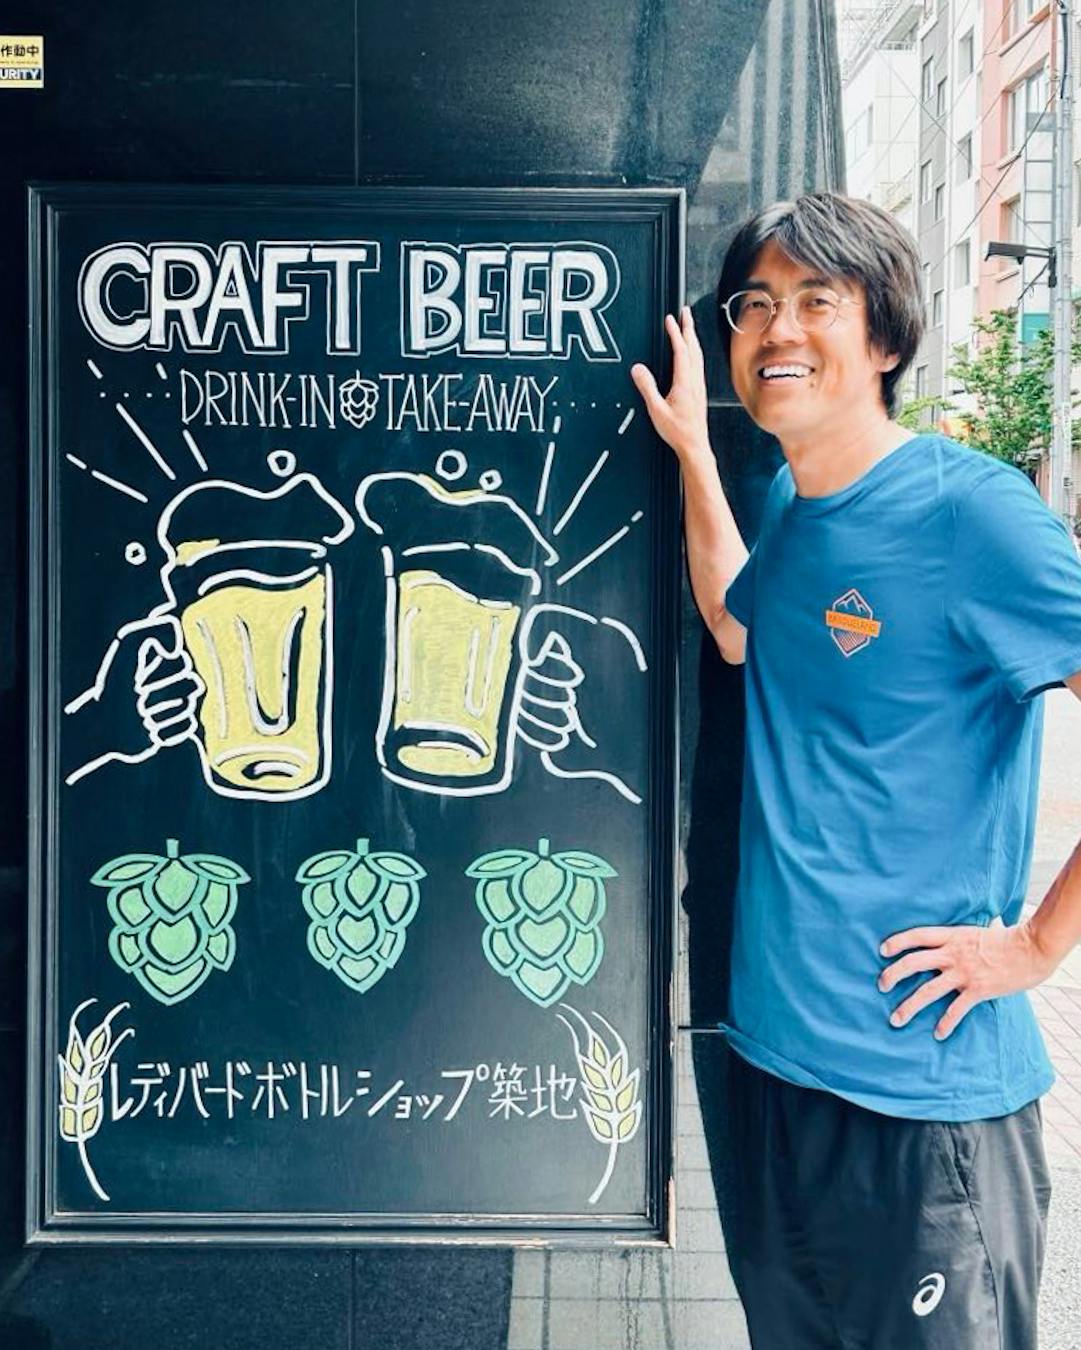 作動中
URITY
CRAFT BEER
DRINK-IN TAKE-AWAY
レディバードボトルショップ築地